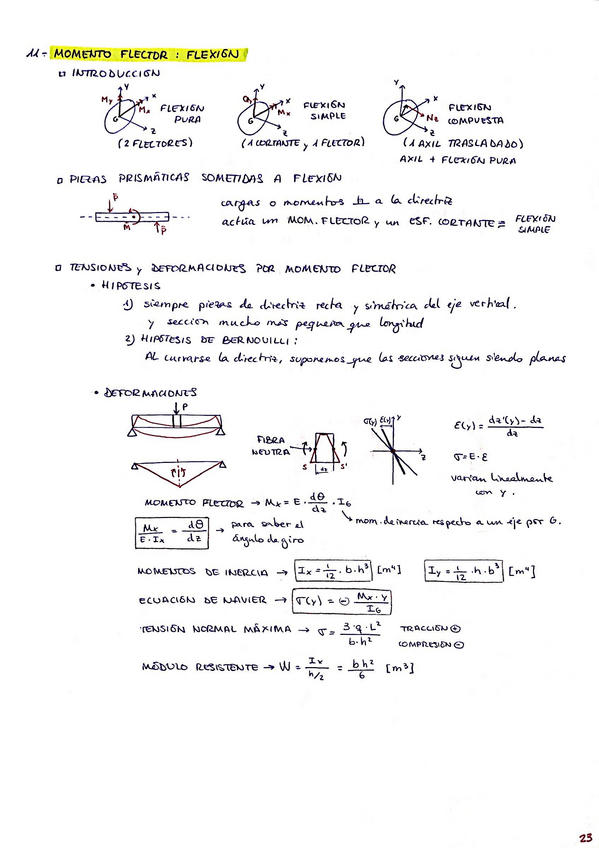 11- MOMENTO FLECTOR: FLEXIÓN
INTRODUCCIÓN
My Mx x y z G FLEXIÓN PURA
(2 FLECTORES)
Qy Mx x y z G FLEXIÓN SIMPLE
(1 CORTANTE y 1 FLECTOR)
Y x Nz z G FLEXIÓN COMPUESTA
(1 AXIL TRASLADADO)
AXIL + FLEXIÓN PURA
PIEZAS PRISMÁTICAS SOMETIDAS A FLEXIÓN
P M P
cargas o momentos ⊥ a la directriz
actúa un MOM. FLECTOR y un ESF. CORTANTE = FLEXIÓN SIMPLE
TENSIONES y DEFORMACIONES POR MOMENTO FLECTOR
• HIPÓTESIS
1) siempre piezas de directriz recta y simétrica del eje vertical.
y sección mucho más pequeña que longitud
2) HIPÓTESIS DE BERNOUILLI:
AL curvarse la directriz, suponemos que las secciones siguen siendo planas
• DEFORMACIONES
P
FIBRA NEUTRA
S dz S'
σ(y) ε(y) y z
ε(y) = dz'(y) - dz / dz
σ = E · ε
varían linealmente
con y.
MOMENTO FLECTOR → Mx = E · dθ/dz · IG
mom. de inercia respecto a un eje por G.
Mx / E · Ix = dθ/dz → para saber el
ángulo de giro
MOMENTOS DE INERCIA → Ix = 1/12 · b · h³ [m⁴] Iy = 1/12 · h · b³ [m⁴]
ECUACIÓN DE NAVIER → σ(y) = ⊖ Mx · y / IG
TENSIÓN NORMAL MÁXIMA → σ = 3 · q · L² / b · h² TRACCIÓN ⊕
COMPRESIÓN ⊖
MÓDULO RESISTENTE → W = Ix / h/2 = bh²/6 [m³]
23